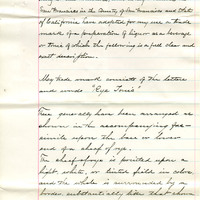 San Francisco in the County of San Francisco and State
of California have adopted for my use a trade
mark for a preparation of liquor as a beverage
or tonic of which the following is a full clear and
exact description.
My trade mark consists of the letters
and words "Rye Tonic"
These generally have been arranged as
shown in the accompanying fac-
simile upon the base or lower
end of a sheaf of rye.
The sheaf of rye is printed upon a
light white, or tinted field in color
and the whole is surrounded by a
border substantially like that above